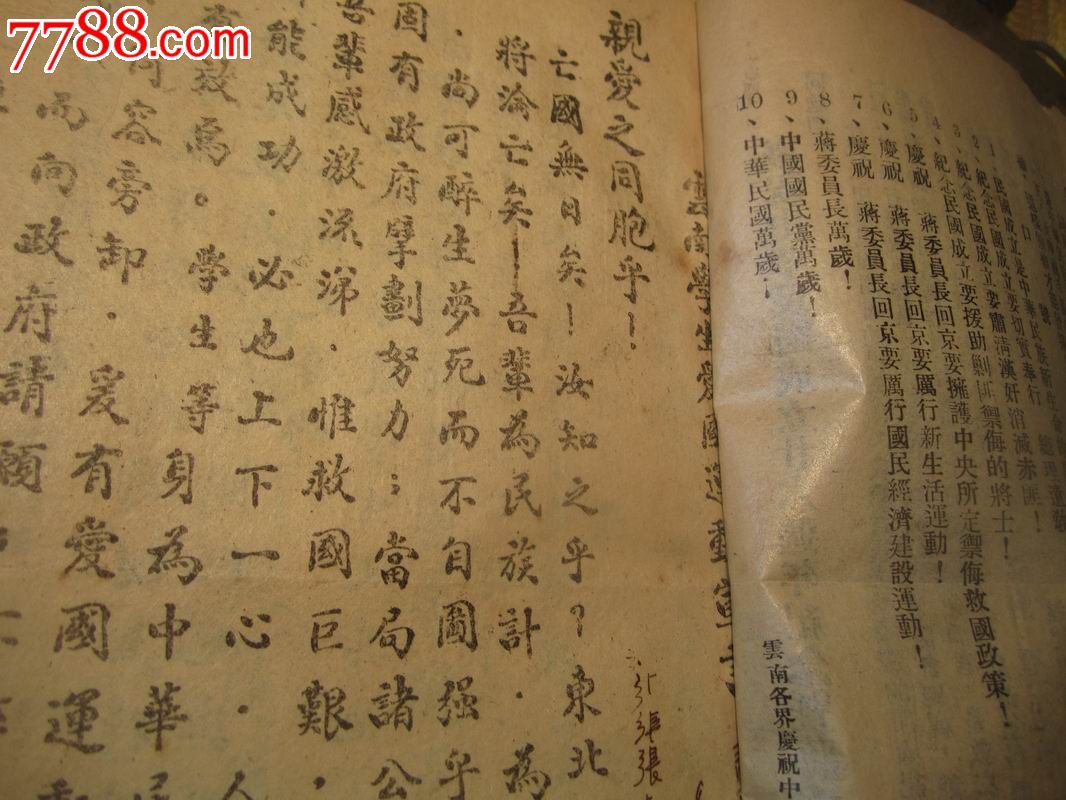 7788.com
中国收藏热线
口號
1、民國成立是中華民族新生命
2、紀念民國成立要切實奉行 總理遺教
3、紀念民國成立要肅清漢奸消滅赤匪！
4、紀念民國成立要援助剿匪禦侮的將士！
5、慶祝 蔣委員長回京要擁護中央所定禦侮救國政策！
6、慶祝 蔣委員長回京要厲行新生活運動！
7、慶祝 蔣委員長回京要厲行國民經濟建設運動！
8、蔣委員長萬歲！
9、中國國民黨萬歲！
10、中華民國萬歲！
雲南各界慶祝中
雲南學生愛國運動宣
親愛之同胞乎！
亡國無日矣！汝知之乎？東北
將淪亡矣！吾輩為民族計．為
．尚可醉生夢死而不自圖强乎
固有政府擘劃努力；當局諸公
吾輩感激流涕．惟救國巨艱，
能成功．必也上下一心．人
效焉。學生等身為中華民
容旁卸．爰有愛國運動
而向政府請願